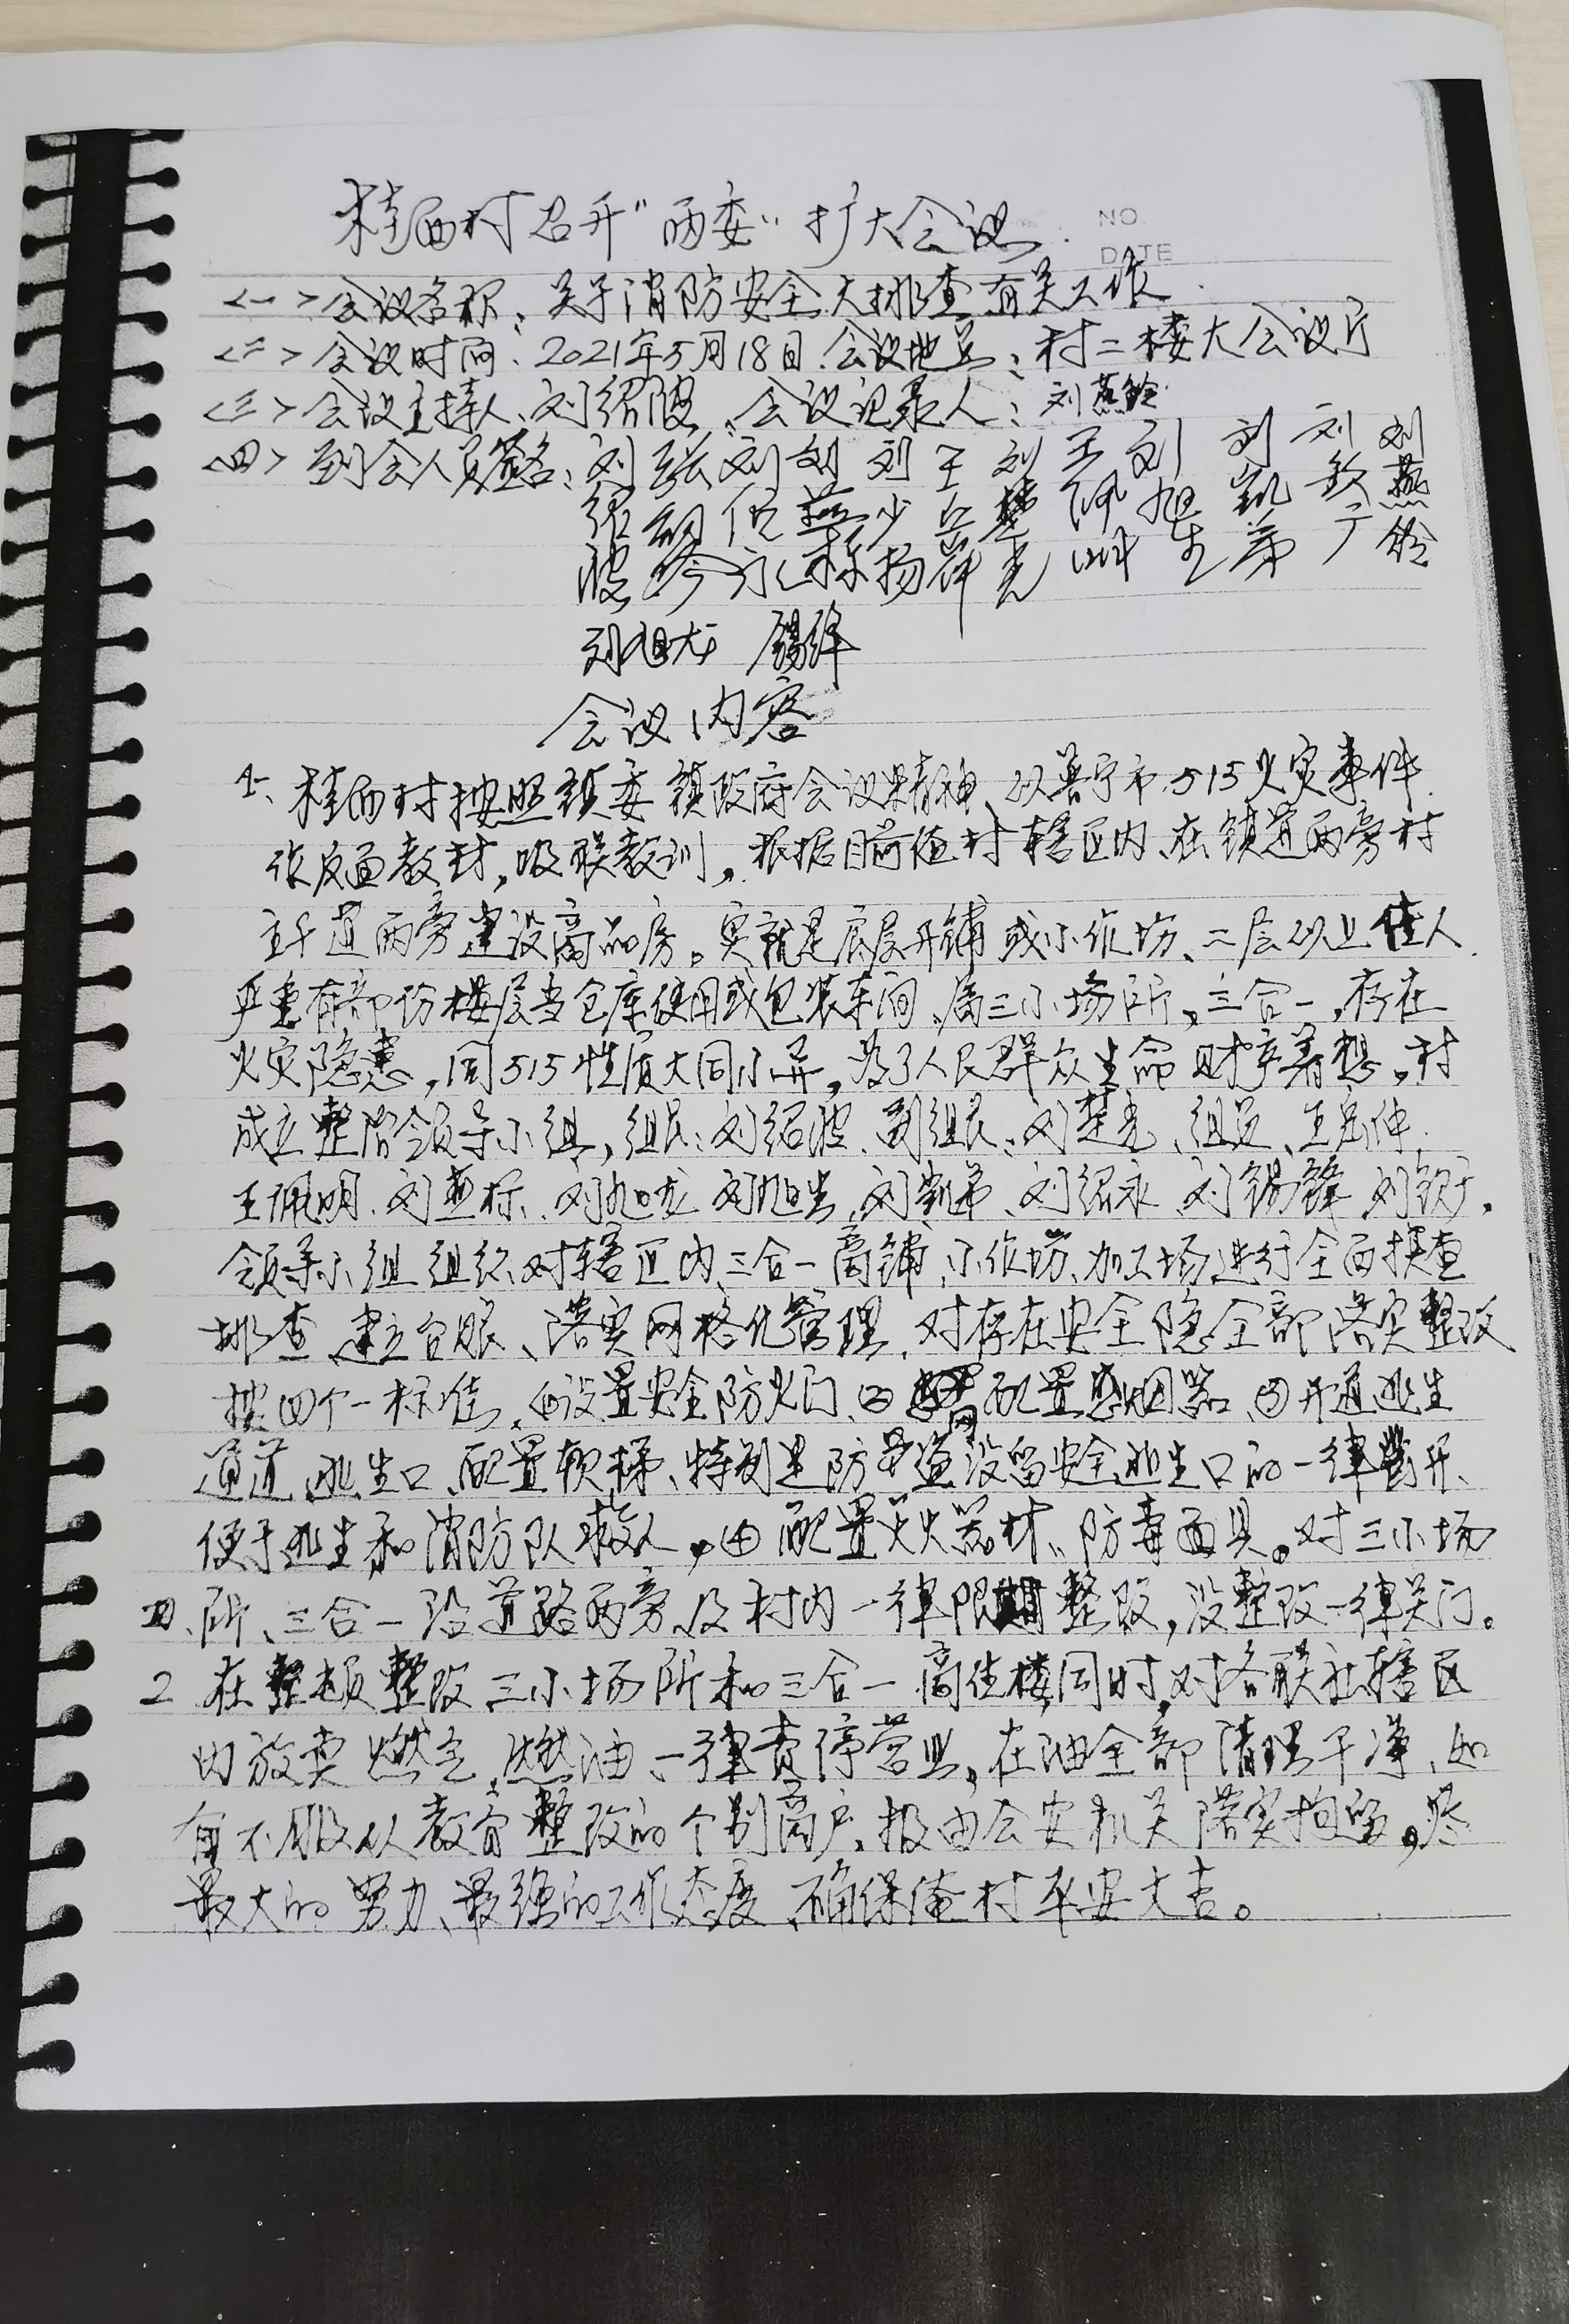 桂西村召开“两委”扩大会议
NO.
DATE
<一>会议名称:关于消防安全大排查有关工作
<二>会议时间、2021年5月18日.会议地点:村二楼大会议厅
<三>会议主持人、刘绍波、会议记录人:刘燕铃
<四>到会人员签名:刘 张 刘 刘 刘 王 刘 王 刘 刘 刘 刘
绍 少 岳 楚 佩 旭 凯 钦 燕
波 永 标 扬 光 明 生 弟 于 铃
刘旭龙 锡锋
会议内容
1、桂西村按照镇委镇政府会议精神、以普宁市515火灾事件
作反面教材,吸取教训,根据目前俺村辖区内、在镇道两旁村
主干道两旁建设商品房。实就是底层开铺或小作坊、二层以上住人
严重有部份楼层当仓库使用或包装车间、属三小场所,三合一,存在
火灾隐患,同515性质大同小异,为了人民群众生命财产着想,村
成立整治领导小组,组长:刘绍波、副组长:刘楚光、组员、王岳伸
王佩明、刘燕标、刘旭龙 刘旭生、刘凯弟、刘绍永 刘锡锋 刘钦于,
领导小组组织对辖区内三合一商铺、小作坊、加工场进行全面摸查
排查 建立台账、落实网格化管理、对存在安全隐全部落实整改
按四个一标准,设置安全防火门、配置感烟器、开通逃生
通道、逃生口、配置软梯、特别是防盗网没留安全逃生口的一律剪开、
便于逃生和消防队救人,配置灭火器材、防毒面具。对三小场
所、三合一沿道路两旁及村内一律限期整改,没整改一律关门。
2 在整顿整改三小场所和三合一商住楼同时,对各联社辖区
内放卖燃气,燃油、一律责停营业,在油全部清理干净、如
有不服从教育整改的个别商户,报由公安机关落实拘留,尽
最大的努力、最强的工作态度、确保俺村平安大吉。